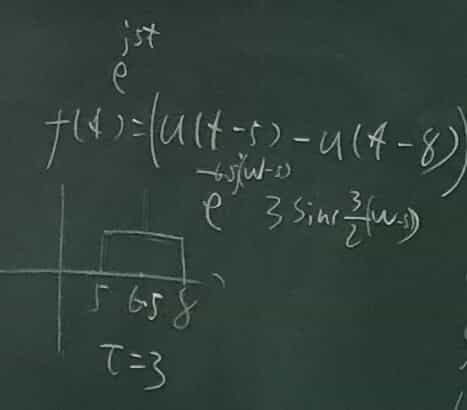 e^{j5t}
f(t)=(u(t-5)-u(t-8))
e^{-6.5j(w-5)} 3 Sinc \frac{3}{2}(w-5)
5 6.5 8
τ=3